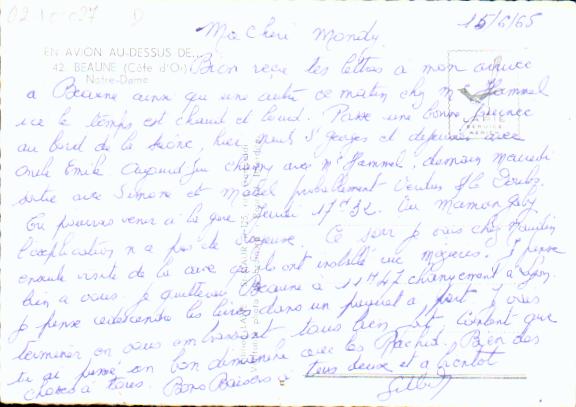 15/6/65
Ma Chérie Mondy
EN AVION AU-DESSUS DE...
42. BEAUNE (Côte d'Or)
Notre-Dame
Bien reçu les lettres à mon arrivée
a Beaune ainsi que une autre ce matin chez Mr Hammel
ici le temps est chaud et lourd. Passé une bonne journée
au bord de la Saône, hier, Nuits St Georges et déjeuner avec
oncle Emile Aujourd'hui avec Mr Hammel, demain mercredi
sortie avec Simone et Marcel probablement Verdun S/le Doubs.
Tu pourras venir à la gare Jeudi 17h32. Maman Gaby
l'explication n'a pas de Ce soir je vais chez
ensuite visite de la cave qu'ils ont installé Je pense
bien a vous. Je quitterai Beaune à 11h47 changement a Lyon.
Je pense redescendre les livres dans un paquet a part. Je vais
terminer en vous embrassant tous bien fort content que
tu ai passé un bon dimanche avec les Rachid. Bien des
choses à tous. Bons Baisers a tous deux et a bientôt
Gilbert